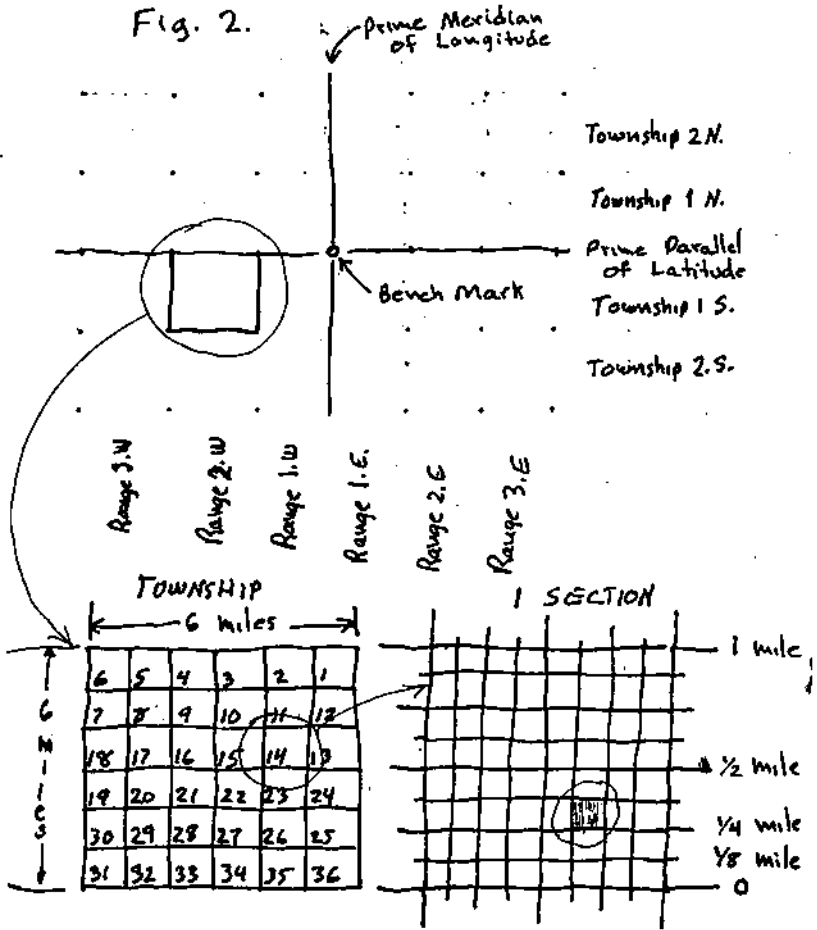 Fig. 2.
Prime Meridian
of Longitude
Township 2 N.
Township 1 N.
Prime Parallel
of Latitude
Bench Mark
Township 1 S.
Township 2.S.
Range 3.W
Range 2.W
Range 1.W
Range 1.E.
Range 2.E
Range 3.E
TOWNSHIP
6 miles
6 Miles
6 5 4 3 2 1
7 8 9 10 11 12
18 17 16 15 14 13
19 20 21 22 23 24
30 29 28 27 26 25
31 32 33 34 35 36
1 SECTION
1 mile
1/2 mile
1/4 mile
1/8 mile
0